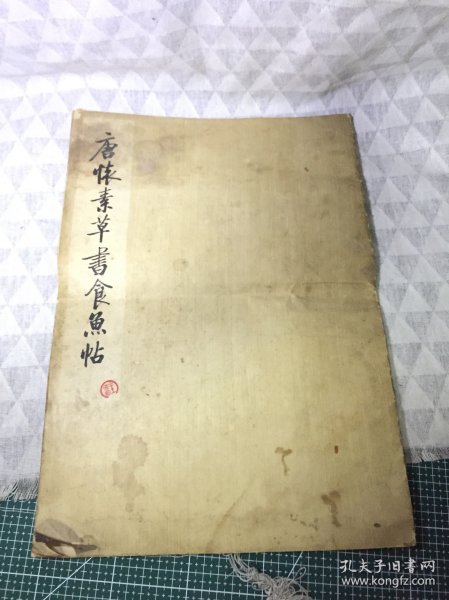 唐懐素草書食魚帖
孔夫子旧书网
www.kongfz.com